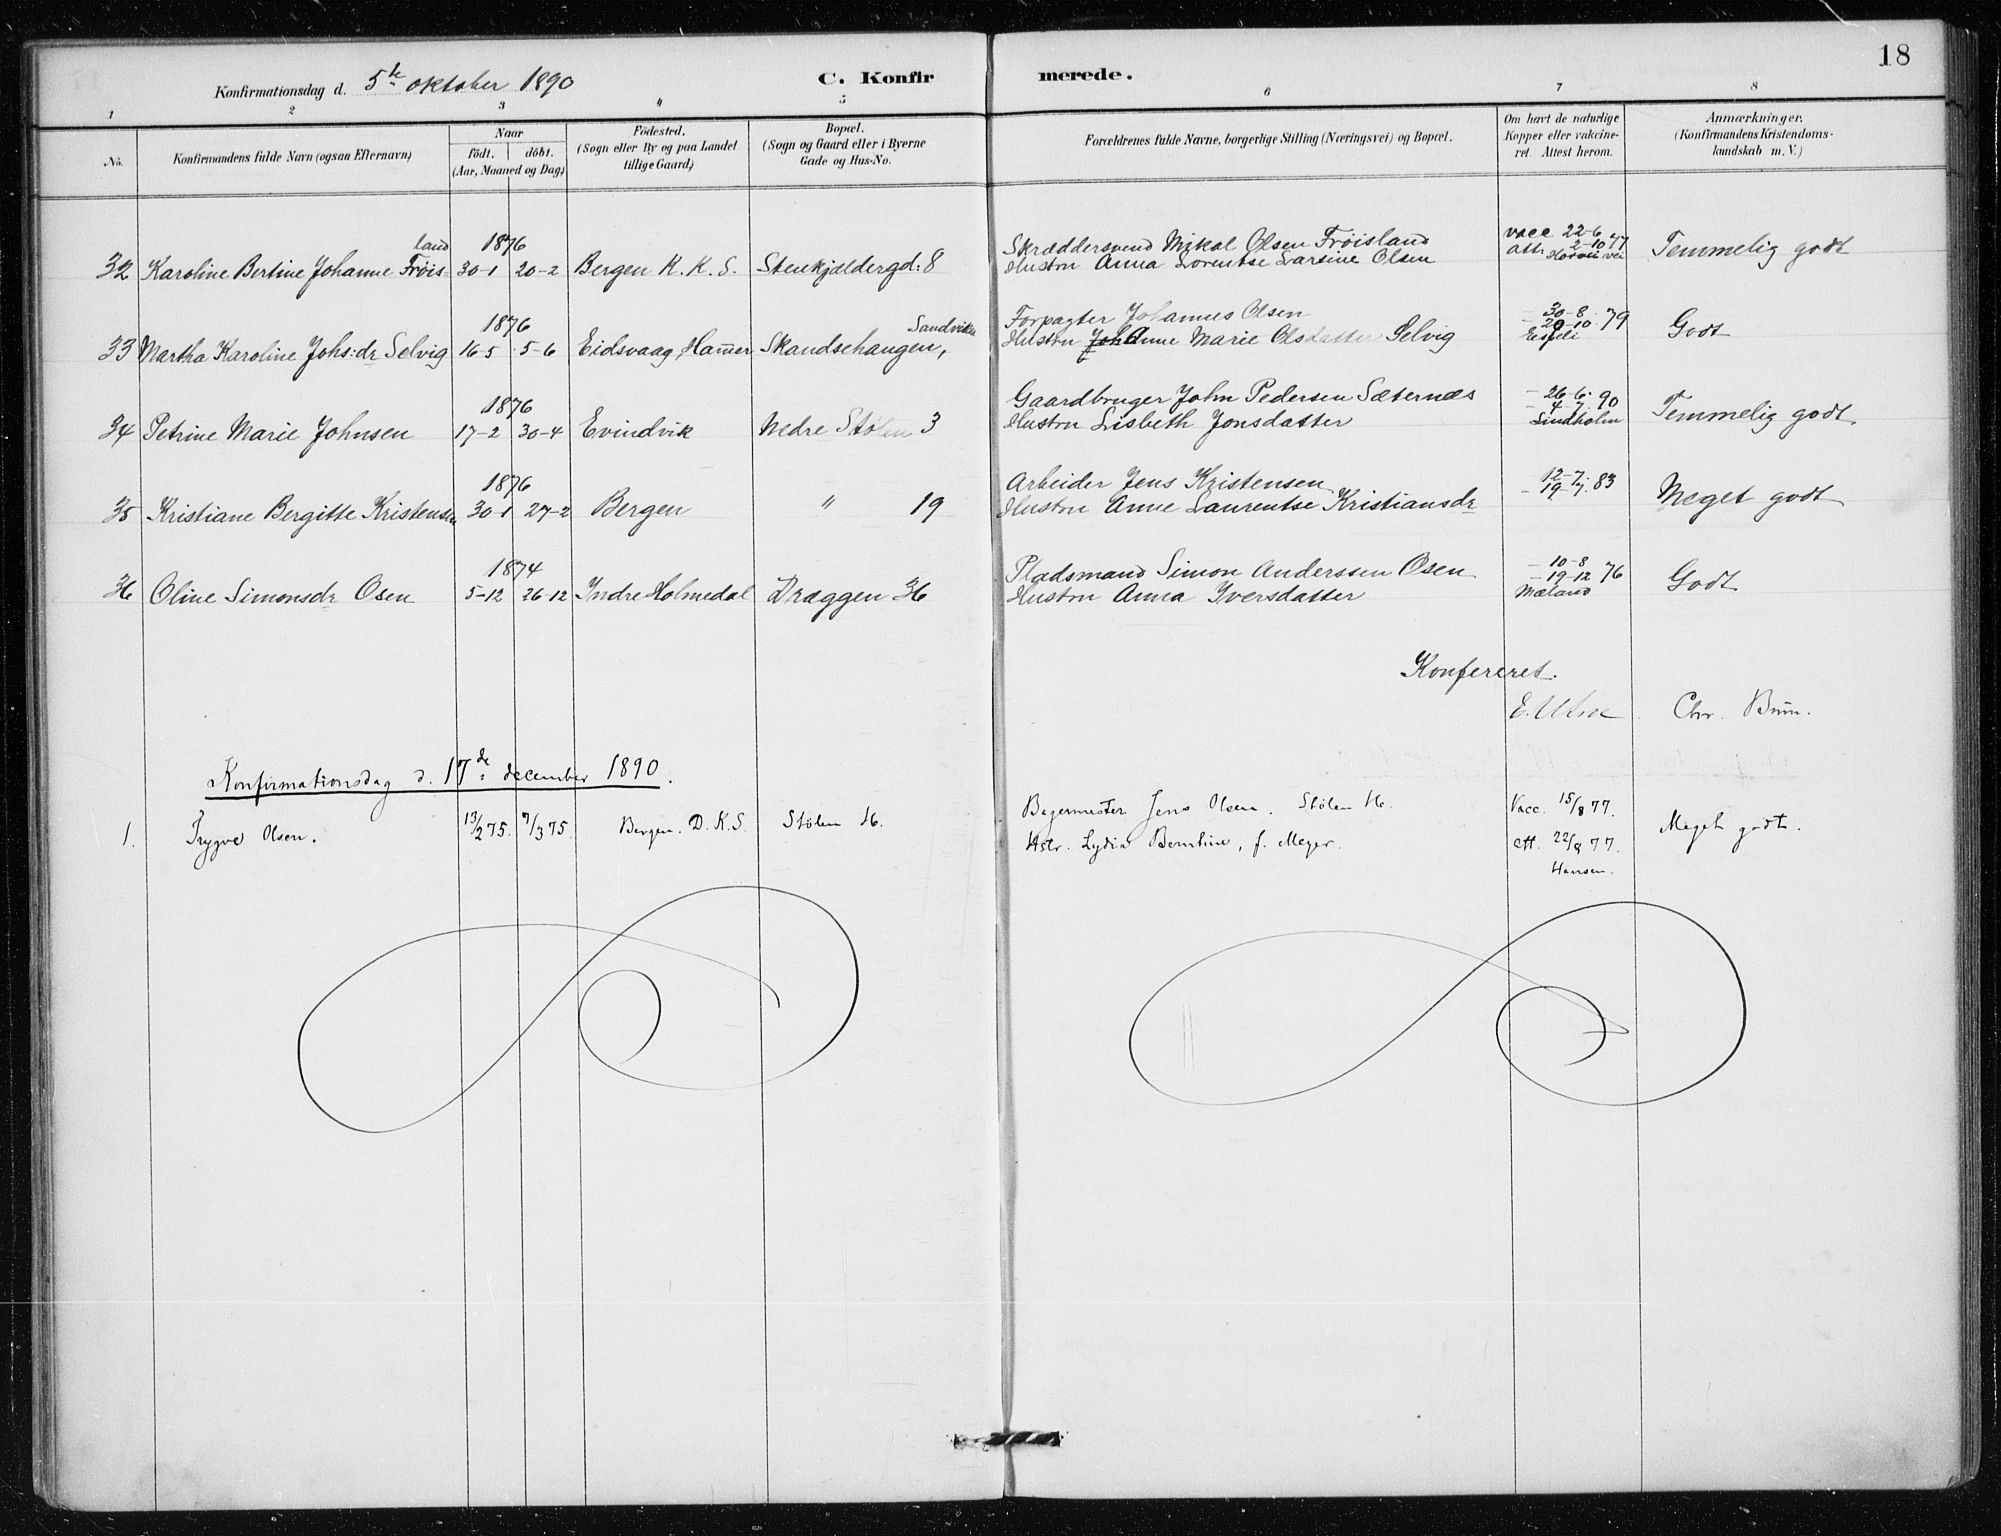 18
Konfirmationsdag d. 5te oktober 1890
C. Konfirmerede.
1 2 3 " 5 6 7 8
No. Konfirmandens fulde Navn (ogsaa Efternavn) Naar födt. döbt. (Aar, Maaned og Dag)
Födested. (Sogn eller By og paa Landet tillige Gaard)
Bopæl. (Sogn og Gaard eller i Byerne Gade og Hus-No.
Forældrenes fulde Navne, borgerlige Stilling (Næringsvei) og Bopæl.
Om havt de naturlige Kopper eller vakcineret Attest herom.
Anmærkninger. (Konfirmandens Kristendomskundskab m. V.)
land 1876 Skræddersvend Mikal Olsen Frøisland vacc 22-6
32 Karoline Bertine Johanne Frøis 30-1 20-2 Bergen K. K. S. Stenkjældergd: 8 Hustru Anna Lorentse Larsine Olsen att. 2-10 77 Temmelig godt
1876 Sandviken Forpagter Johannes Olsen - 30-8
33 Martha Karoline Johs:dr Selvig 16-5 5-6 Eidsvaag, Ham̄er Skandsehaugen, Hustru Anne Marie Olsdatter Selvig - 20-10 79 Godt
1876 Gaardbruger John Pedersen Sæternæs - 26-6
34 Petrine Marie Johnsen 17-2 30-4 Evindvik Nedre Stølen 3 Hustru Lisbeth Jonsdatter - 4-7 90 Lindholm Temmelig godt
1876 Arbeider Jens Kristensen 12-7
35 Kristiane Bergitte Kristensen 30-1 27-2 Bergen " 19 Hustru Anne Laurentse Kristiansdr - 19-7 83 Meget godt
1874 Pladsmand Simon Anderssen Osen - 10-8
36 Oline Simonsdr Osen 5-12 26-12 Yndre Holmedal Dræggen 36 Hustru Anna Yversdatter - 19-12 76 Mæland Godt
Konfereret.
Chr. Brun.
Konfirmationsdag d. 17de december 1890.
1. Trygve Olsen. 13/2 75. 7/3 75. Bergen. D.K.S. Stølen 16. Bagermester Jens Olsen. Stølen 16. Vacc. 15/8 77. Meget godt.
Hstr. Lydia Berntine, f. Meyer. att. 22/8 77.
Hansen.